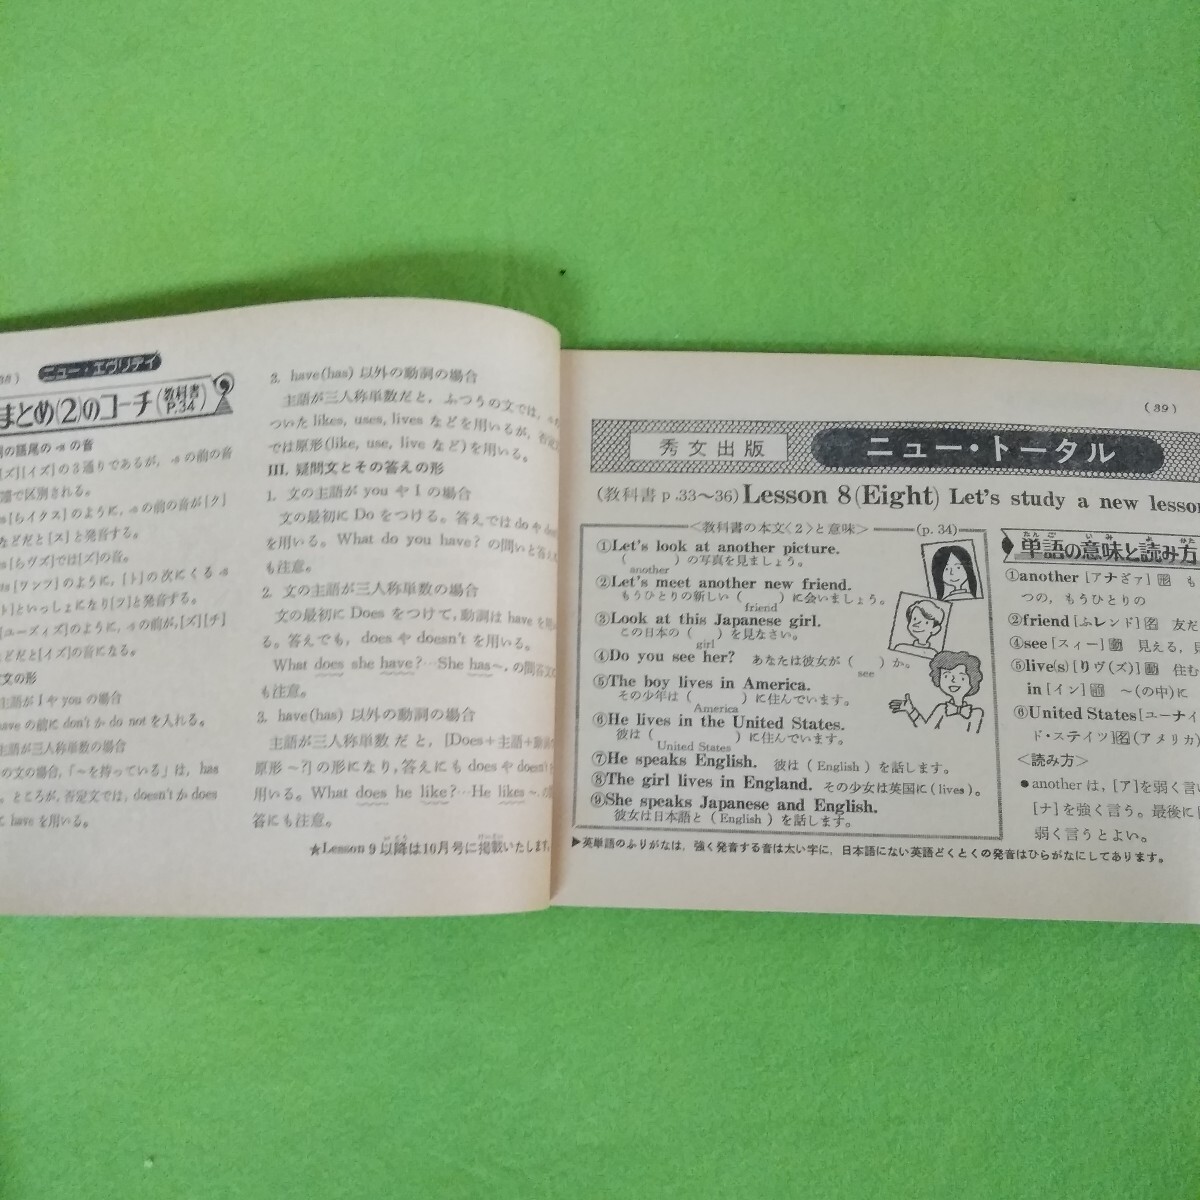 ニュー・エヴリデイ
まとめ(2)のコーチ(教科書 P.34)
の語尾の -s の音
[ズ][イズ]の3通りであるが, -s の前の音
で区別される。
[らイクス]のように, -s の前の音が[ク]
などだと[ス]と発音する。
[らヴズ]では[ズ]の音。
[ワンツ]のように, [ト]の次にくる -s
といっしょになり[ツ]と発音する。
[ユーズィズ]のように, -s の前が,[ズ][チ]
などだと[イズ]の音になる。
文の形
主語が I や you の場合
have の前に don't か do not を入れる。
主語が三人称単数の場合
の文の場合,「～を持っている」は, has
。ところが, 否定文では, doesn't か does
have を用いる。
3. have(has) 以外の動詞の場合
主語が三人称単数だと, ふつうの文では, -s
ついた likes, uses, lives などを用いるが,
では原形(like, use, live など)を用いる。
III. 疑問文とその答えの形
1. 文の主語が you や I の場合
文の最初に Do をつける。答えでは do や
を用いる。What do you have? の問いと答え
も注意。
2. 文の主語が三人称単数の場合
文の最初に Does をつけて, 動詞は have を
る。答えでも, does や doesn't を用いる。
What does she have?…She has～. の問答文
も注意。
3. have(has) 以外の動詞の場合
主語が三人称単数だと, [Does＋主語＋
原形～?]の形になり, 答えにも does や doesn't
用いる。What does he like?…He likes～.
答にも注意。
★Lesson 9 以降は10月号に掲載いたします。
(39)
秀文出版 ニュー・トータル
(教科書 p.33～36) Lesson 8 (Eight) Let's study a new lesson
<教科書の本文〈2〉と意味> (p. 34)
①Let's look at another picture.
( )の写真を見ましょう。
another
②Let's meet another new friend.
もうひとりの新しい( )に会いましょう。
friend
③Look at this Japanese girl.
この日本の( )を見なさい。
girl
④Do you see her? あなたは彼女が( )か。
see
⑤The boy lives in America.
その少年は( )に住んでいます。
America
⑥He lives in the United States.
彼は( )に住んでいます。
United States
⑦He speaks English. 彼は(English)を話します。
⑧The girl lives in England. その少女は英国に(lives)。
⑨She speaks Japanese and English.
彼女は日本語と(English)を話します。
単語の意味と読み方
たんご いみ よ かた
①another [アナざァ] 形 も
つの, もうひとりの
②friend [ふレンド] 名 友だ
④see [スィー] 動 見える, 見
⑤live(s) [りヴ(ズ)] 動 住む
in [イン] 前 ～(の中)に
⑥United States [ユーナイ
ド・ステイツ] 名 (アメリカ)
<読み方>
●another は, [ア]を弱く言い
[ナ]を強く言う。最後に
弱く言うとよい。
▶英単語のふりがなは, 強く発音する音は太い字に, 日本語にない英語どくとくの発音はひらがなにしてあります。